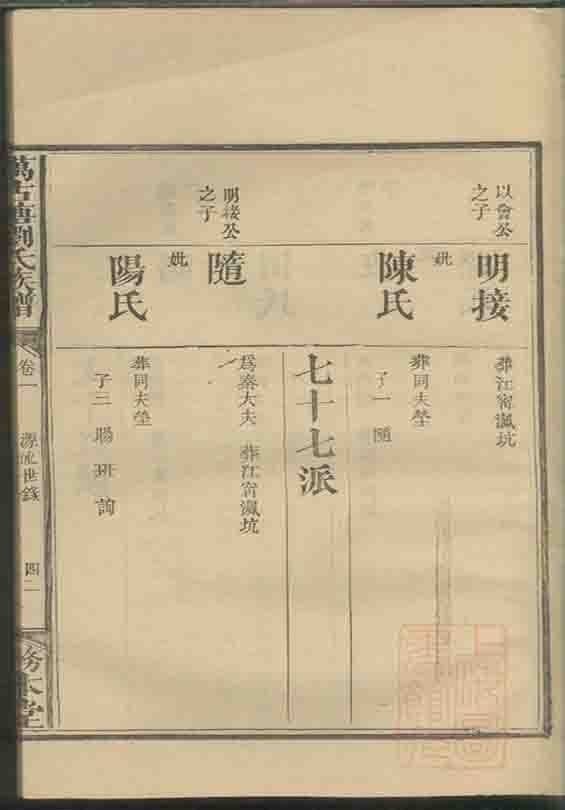 以會公之子
明接
葬江甯瀛坑
妣
陳氏
葬同夫塋
子一 隨
七十七派
明接公之子
隨
爲秦大夫 葬江甯瀛坑
妣
陽氏
葬同夫塋
子三 陽 班 詢
萬古塘劉氏族譜
卷一
源流世錄
四二
務本堂